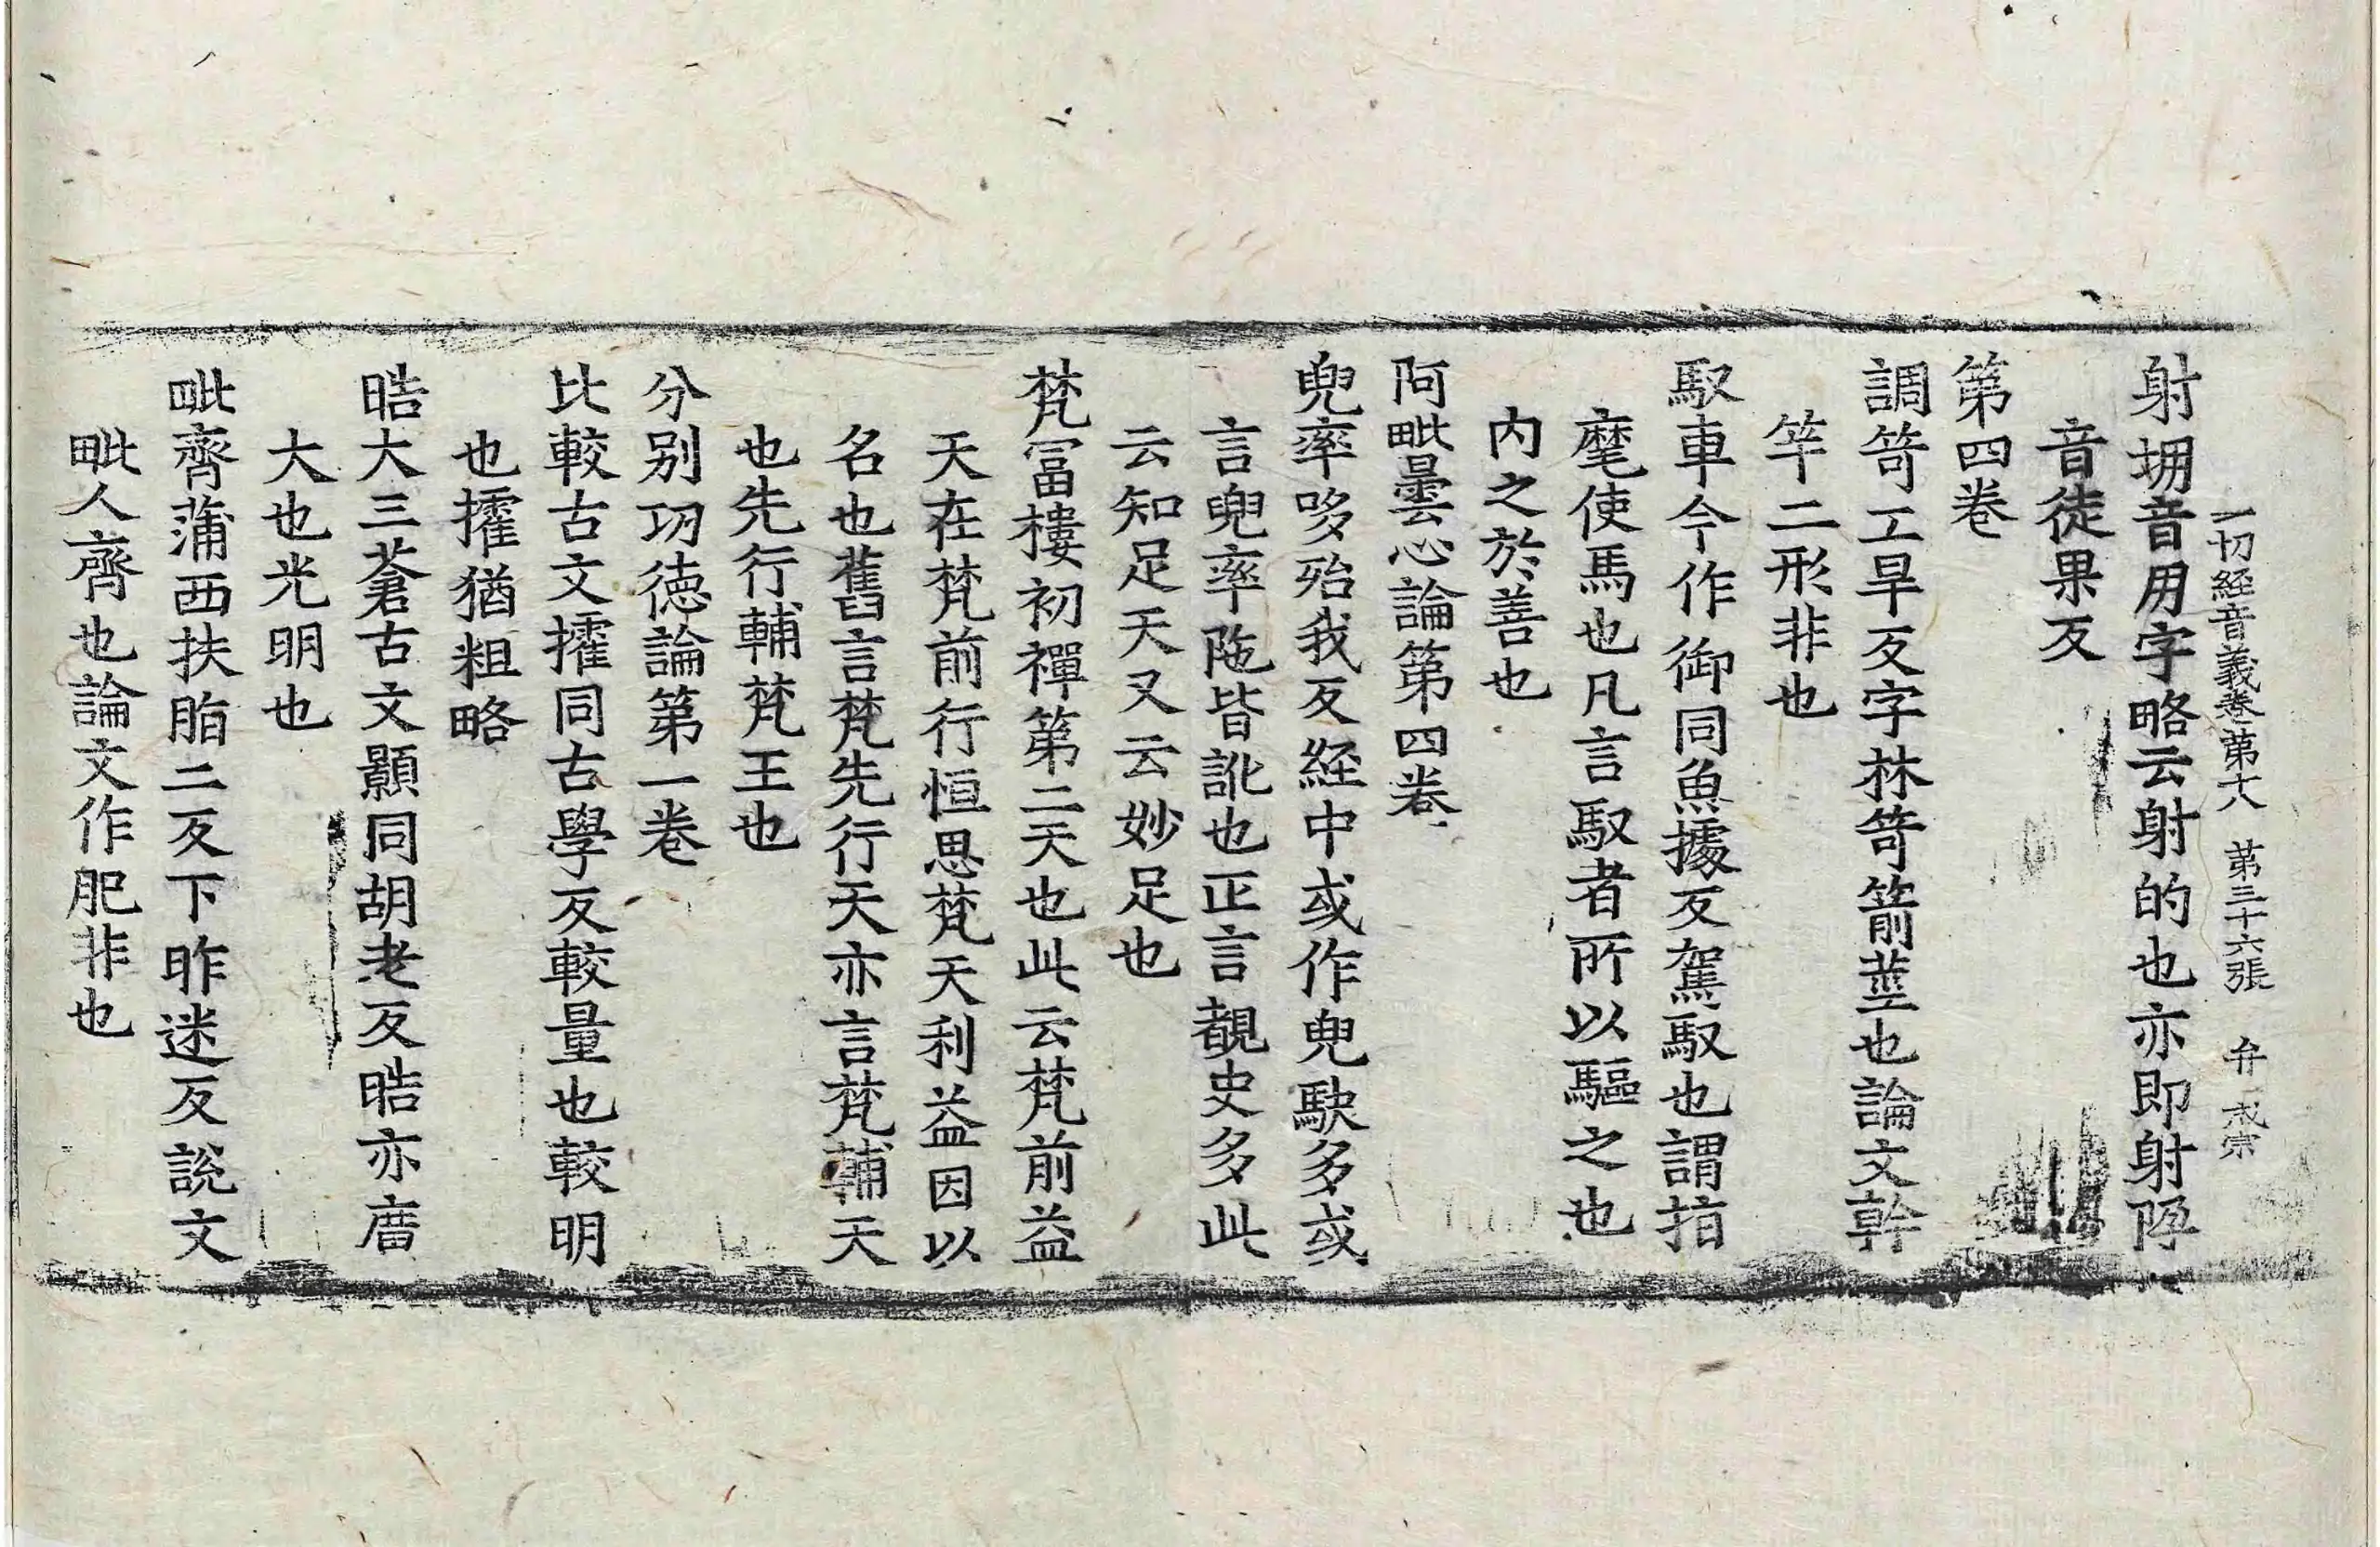 一切経音義卷第十八 第三十六張 弁 戒宗
射堋音用字略云射的也亦即射㙐
音徒果反
第四卷
調笴工旱反字林笴箭莖也論文幹
竿二形非也
馭車今作御同魚據反駕馭也謂指
麾使馬也凡言馭者所以驅之也
内之於善也
阿毗曇心論第四卷
兜率哆殆我反経中或作兜駃多或
言兜率陁皆訛也正言覩史多此
云知足天又云妙足也
梵冨樓初禪第二天也此云梵前益
天在梵前行恒思梵天利益因以
名也舊言梵先行天亦言梵輔天
也先行輔梵王也
分别功徳論第一卷
比較古文㩴同古學反較量也較明
也㩴猶粗略
晧大三蒼古文顥同胡老反晧亦廣
大也光明也
毗齊蒲西扶脂二反下昨迷反説文
毗人齊也論文作肥非也